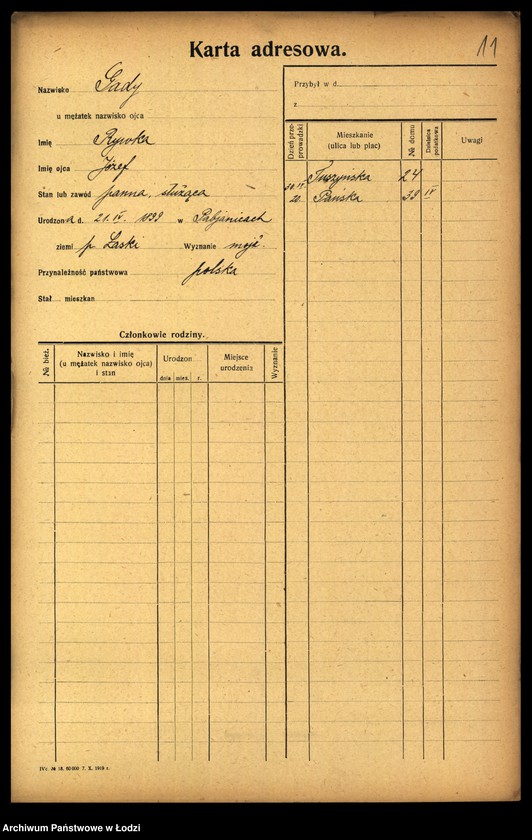 Karta adresowa.
11
Nazwisko Gady
u mężatek nazwisko ojca
Imię Rywka
Imię ojca Józef
Stan lub zawód panna, służąca
Urodzon a d. 21.IV. 1899 w Pabjanicach
ziemi p. Łaski Wyznanie mojż.
Przynależność państwowa polska
Stał. mieszkan
Członkowie rodziny.
№ bież.
Nazwisko i imię
(u mężatek nazwisko ojca)
i stan
Urodzon
dnia mies. r.
Miejsce
urodzenia
Wyznanie
Przybył w d.
z
Dzień prze-
prowadzki
Mieszkanie
(ulica lub plac)
№ domu
Dzielnica
podatkowa
Uwagi
Tuszyńska 24
20. Pańska 39 IV
IVz. № 18. 60 000 7. X. 1919 r.
Archiwum Państwowe w Łodzi